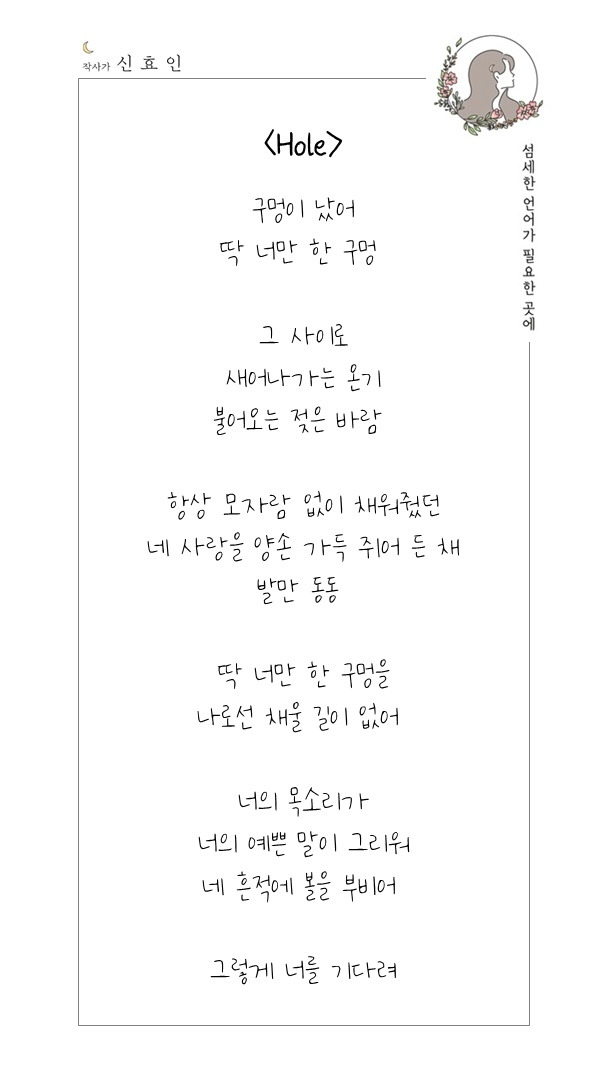 작사가 신효인
섬세한 언어가 필요한 곳에
<Hole>
구멍이 났어
딱 너만 한 구멍
그 사이로
새어나가는 온기
불어오는 젖은 바람
항상 모자람 없이 채워줬던
네 사랑을 양손 가득 쥐어 든 채
발만 동동
딱 너만 한 구멍을
나로선 채울 길이 없어
너의 목소리가
너의 예쁜 말이 그리워
네 흔적에 볼을 부비어
그렇게 너를 기다려